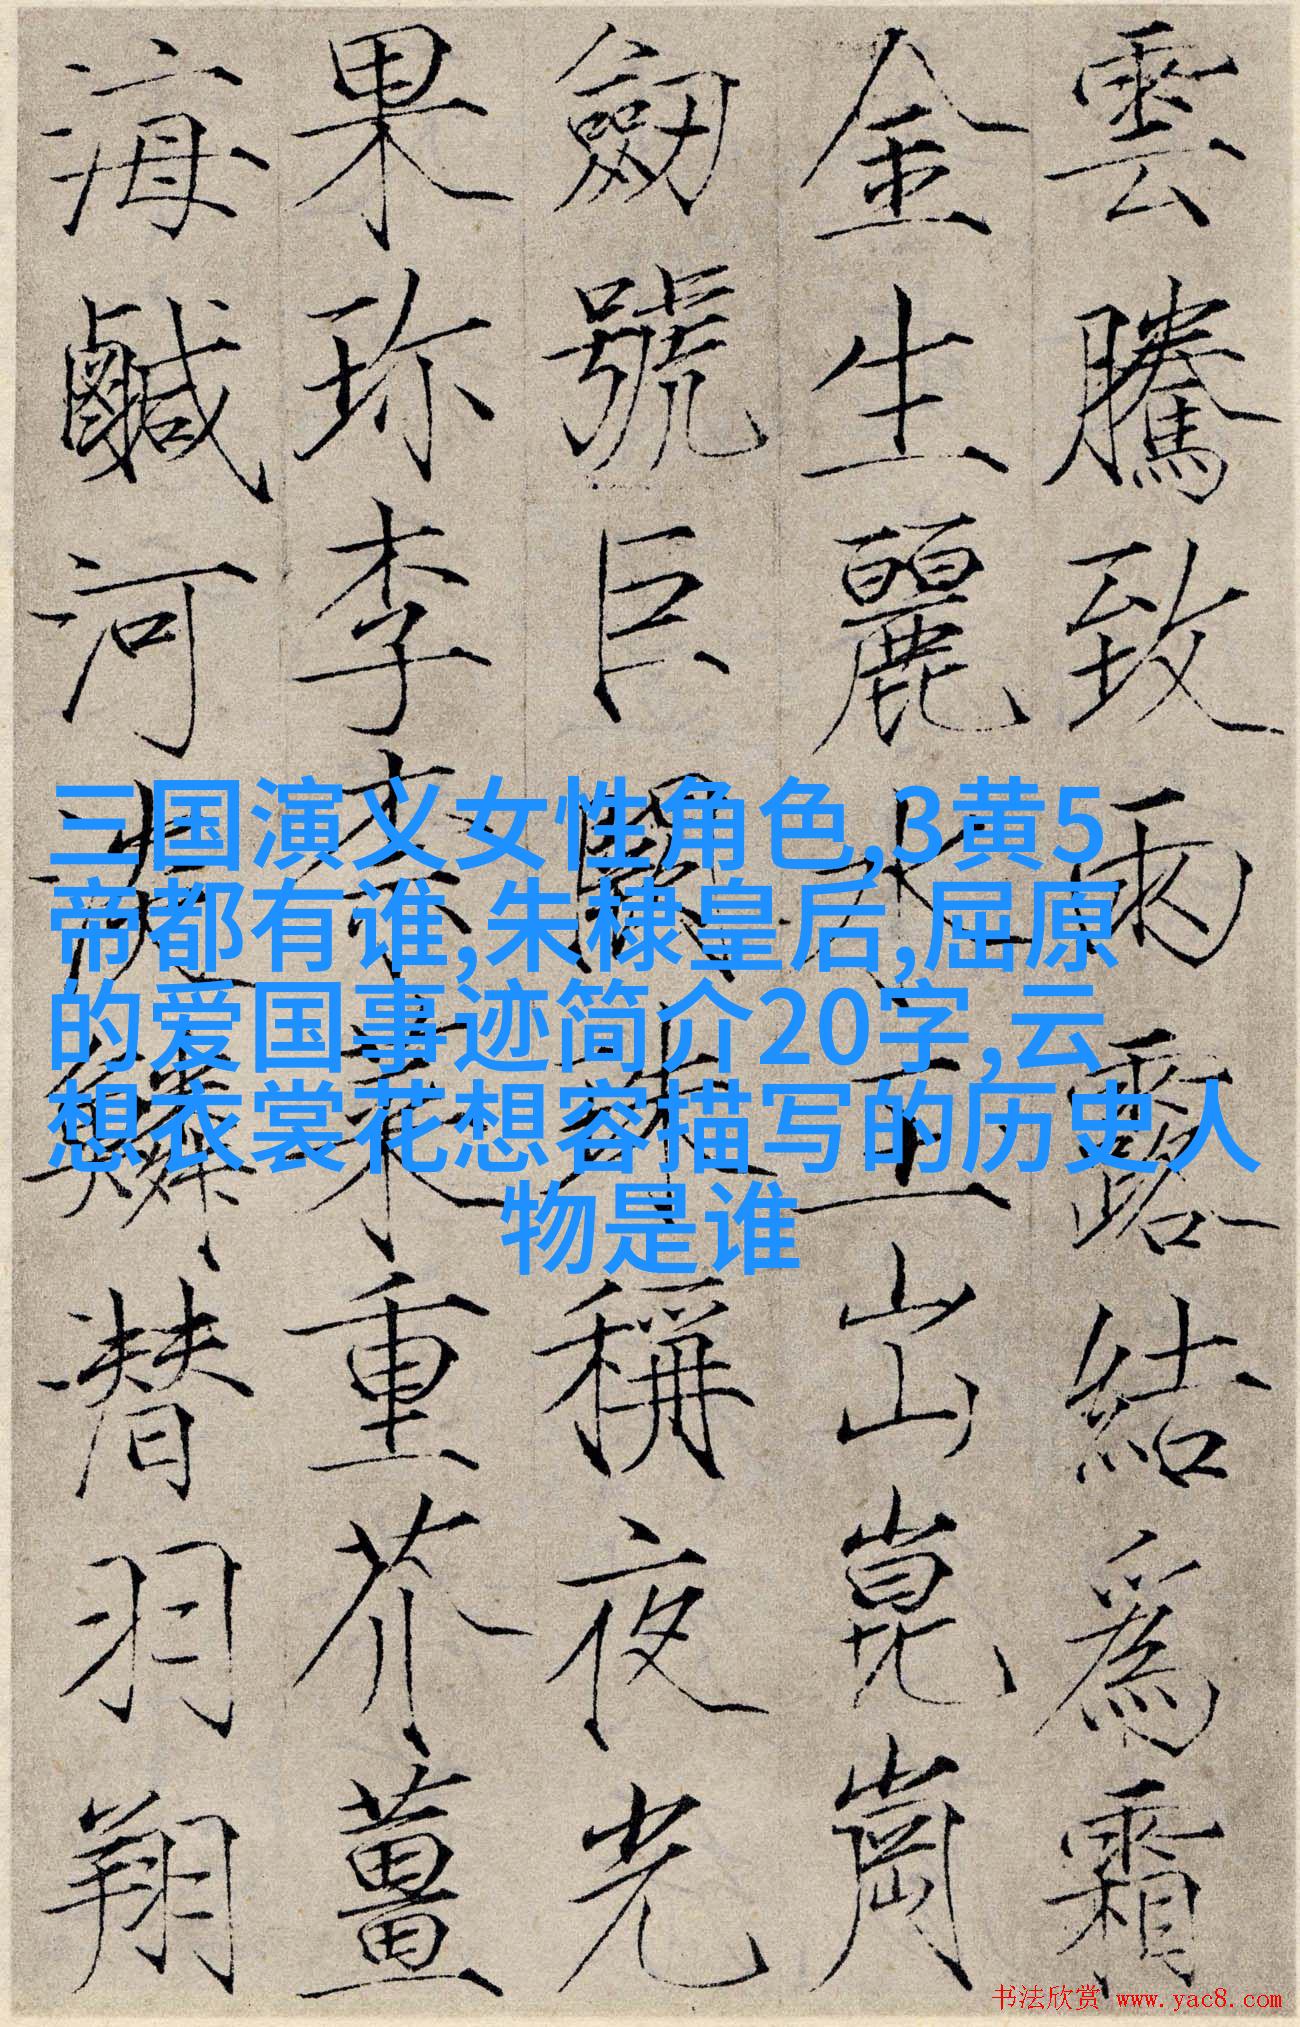 雲騰致雨露結爲霜
金生麗水玉出崑崗
劒號巨闕珠稱夜光
果珍李柰菜重芥薑
海鹹河淡鱗潛羽翔
三国演义女性角色,3黄5
帝都有谁,朱棣皇后,屈原
的爱国事迹简介20字,云
想衣裳花想容描写的历史人
物是谁
书法欣赏 www.yac8.com